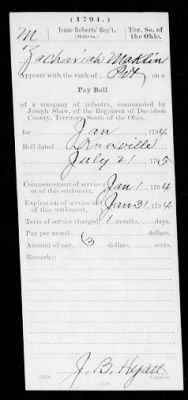 (1794.)
M Isaac Roberts' Reg't. Ter. So. of
(MILITIA.) the Ohio.
Zachariah Macklin
Appears with the rank of Pvt on a
Pay Roll
of a company of infantry, commanded by
Joseph Shaw, of the Regiment of Davidson
County, Territory South of the Ohio,
for Jan 1794
Roll dated Knoxville
July 21 1795
Commencement of service or of this settlement, Jan 1 1794
Expiration of service or of this settlement, Jan 31 1794
Term of service charged, 1 months, days.
Pay per month, 3 dollars,
Amount of pay, dollars, cents.
Remarks:
J. B. Hyatt
Copyist.